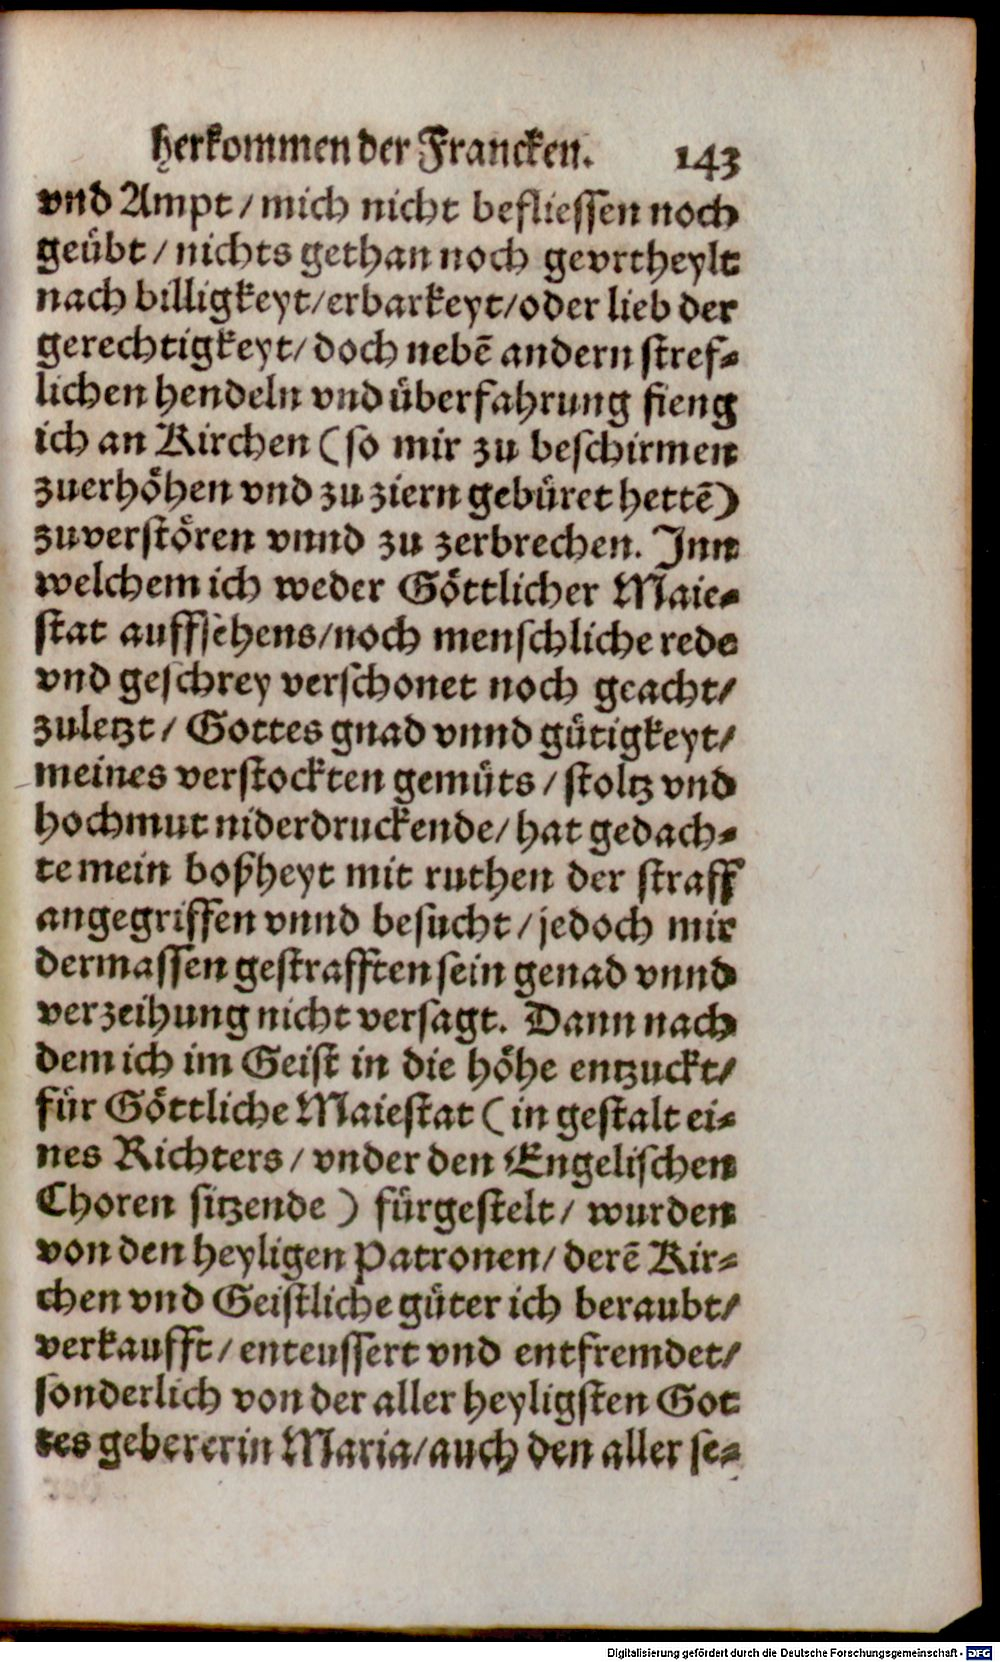 herkommen der Francken. 143
vnd Ampt / mich nicht befliessen noch
geübt / nichts gethan noch gevrtheylt
nach billigkeyt/erbarkeyt/oder lieb der
gerechtigkeyt/ doch nebē andern stref-
lichen hendeln vnd überfahrung fieng
ich an Kirchen (so mir zu beschirmen
zuerhöhen vnd zu ziern gebüret hettē)
zuverstören vnnd zu zerbrechen. Inn
welchem ich weder Göttlicher Maie-
stat auffsehens/noch menschliche rede
vnd geschrey verschonet noch geacht/
zuletzt / Gottes gnad vnnd gütigkeyt/
meines verstockten gemüts / stoltz vnd
hochmut niderdruckende/ hat gedach-
te mein boßheyt mit ruthen der straff
angegriffen vnnd besucht / jedoch mir
dermassen gestrafften sein genad vnnd
verzeihung nicht versagt. Dann nach
dem ich im Geist in die höhe entzuckt/
für Göttliche Maiestat ( in gestalt ei-
nes Richters / vnder den Engelischen
Choren sitzende ) fürgestelt / wurden
von den heyligen Patronen/ derē Kir-
chen vnd Geistliche güter ich beraubt/
verkaufft / enteussert vnd entfremdet/
sonderlich von der aller heyligsten Got
tes gebererin Maria/auch den aller se-
Digitalisierung gefördert durch die Deutsche Forschungsgemeinschaft - DFG